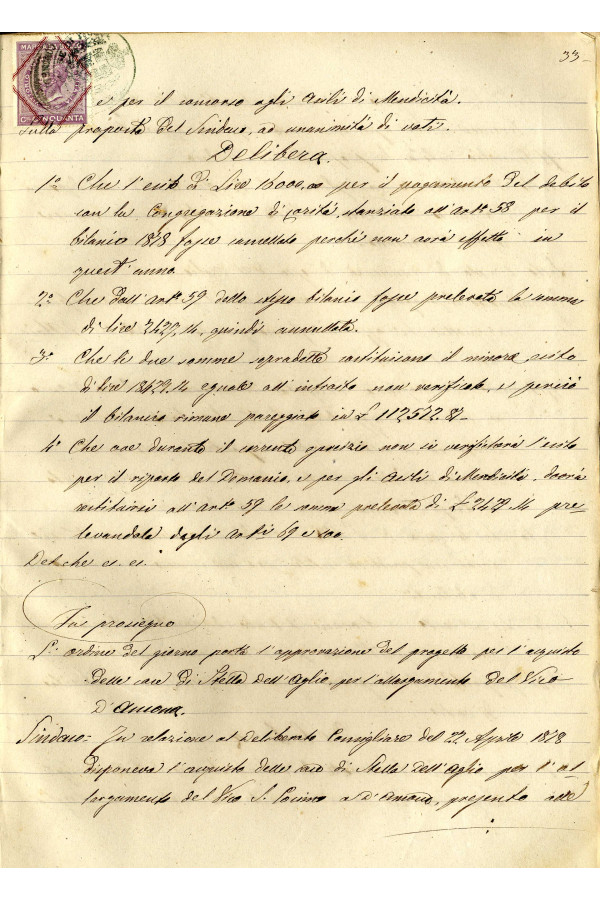 33
MAR
C. CINQUANTA
e per il concorso agli Asili di Mendicità.
Sulla proposta del Sindaco, ad unanimità di voti
Delibera
1º Che l'esito di Lire 16000,00 per il pagamento del debito
con la Congregazione di Carità, stanziato all'art.º 58 per il
bilancio 1878 fosse cancellato perchè non avrà effetto in
quest'anno
2º Che dall'art.º 59 dello stesso bilancio fosse prelevata la somma
di lire 2429.14, quindi annullata.
3º Che le due somme sopradette costituiscano il minore esito
di lire 18429.14 eguale all'introito non verificato, e perciò
il bilancio rimane pareggiato in £ 112532.87-
4º Che ove durante il corrente esercizio non si verificherà l'esito
per il riparto del Demanio, e per gli Asili di Mendicità, dovrà
restituirsi all'art.º 59 la somma prelevata di £ 2429.14 pre-
levandola dagli art.li 69 e 100.
Del che es. es.
In prosieguo
L'ordine del giorno porta l'approvazione del progetto per l'acquisto
delle case di Stella Dell'Aglio, per l'allargamento del Vico
D'Amora.
Sindaco: In relazione al deliberato Consigliare del 22 Aprile 1878
disponeva l'acquisto delle case di Stella Dell'Aglio per l'al-
largamento del Vico S. a D'Amora, presento alle